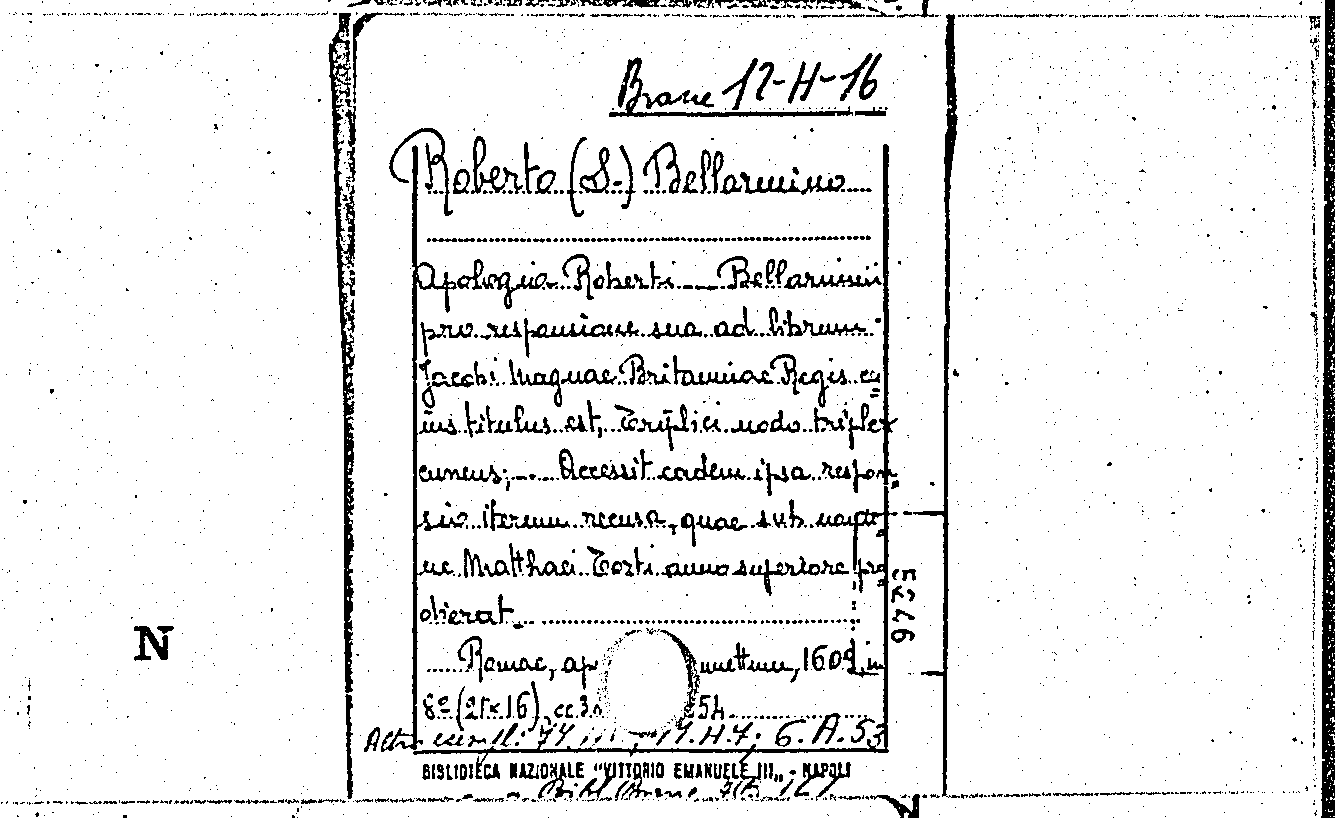 Branc 12-H-16
Roberto (S.) Bellarmino
Apologia Roberti Bellarminii
pro responsione sua ad librum
Jacobi Magnae Britanniae Regis cu„
ius titulus est, Triplici nodo triplex
cuneus; Accessit eadem ipsa respon„
sio iterum recusa, quae sub
ne Matthaei Torti anno superiore pro„
dierat.
Romae, ap mettum, 1609, in
8º (21x16), cc 54
Altri esempl: H.7; 6. A. 53
BIBLIOTECA NAZIONALE "VITTORIO EMANUELE III„ - NAPOLI
Bibl
N
9735